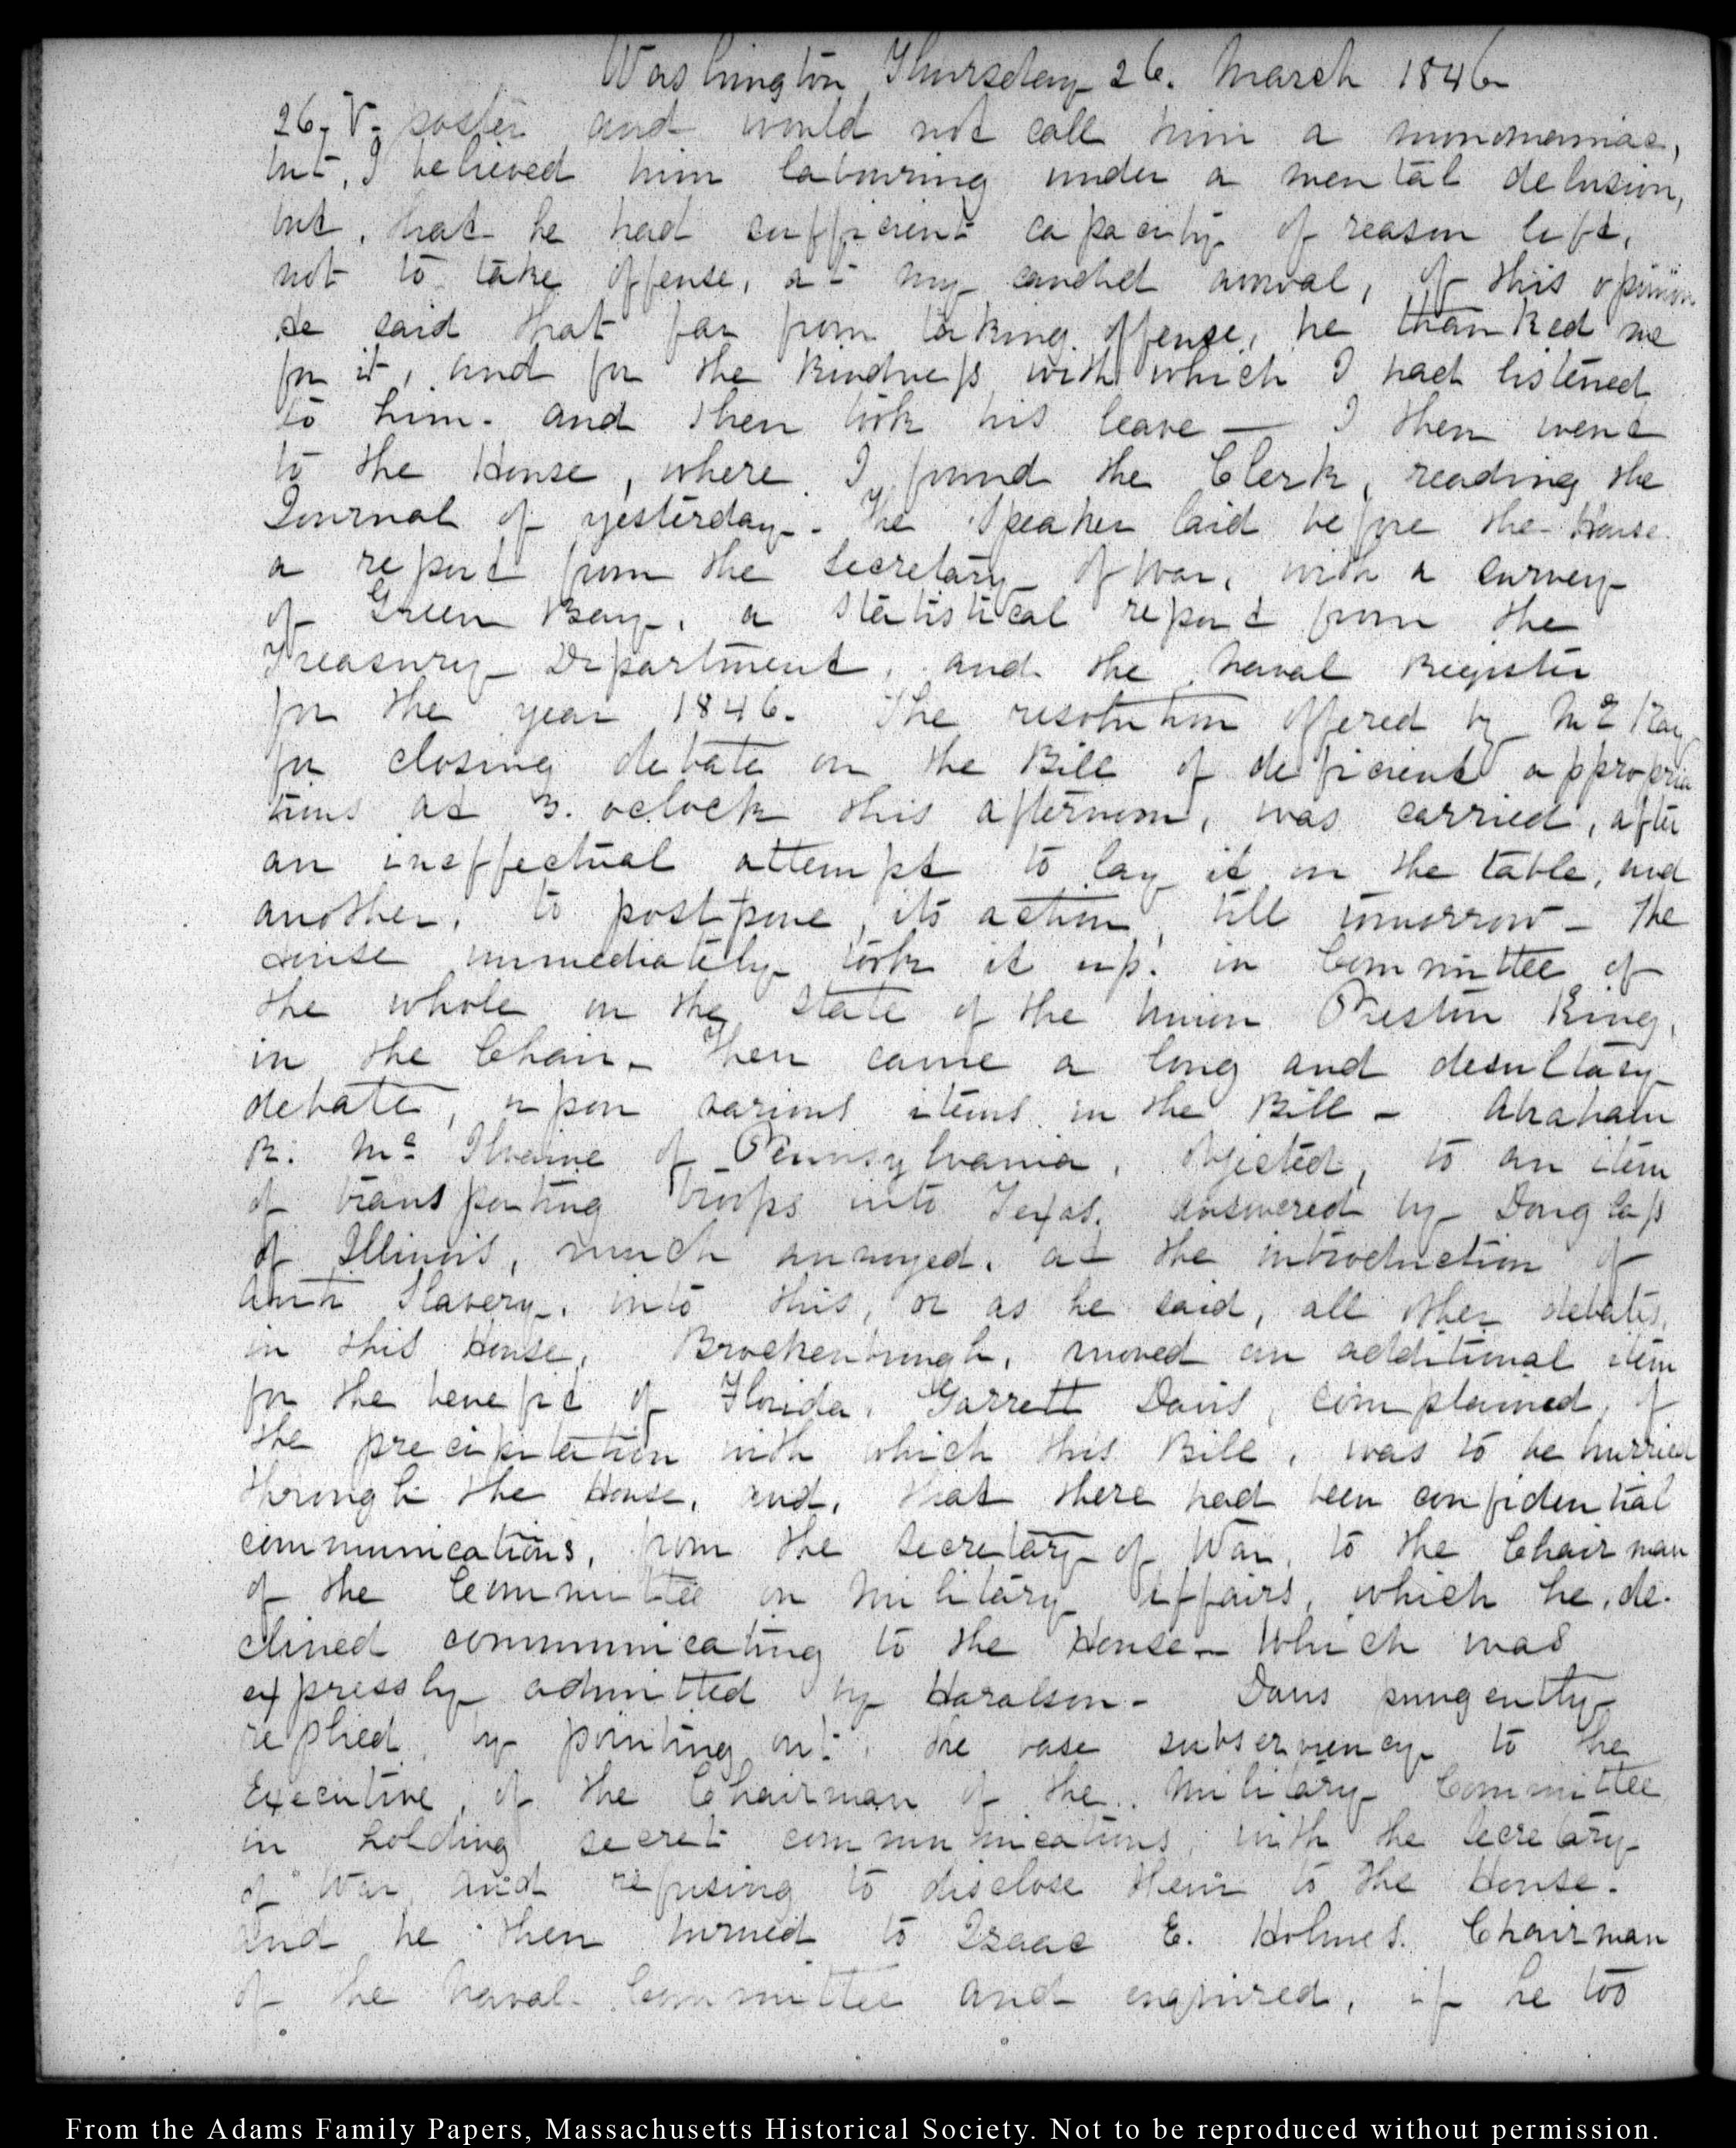 Washington Thursday 26. March 1846
26. V. poster and would not call him a monomaniac,
but, I believed him labouring under a mental delusion,
but, that he had sufficient capacity of reason left,
not to take offense, at my candid avowal, of this opinion
He said that far from taking offense, he thanked me
for it, and for the kindness with which I had listened
to him. and then took his leave — I then went
to the House, where I found the Clerk, reading the
Journal of yesterday. The Speaker laid before the House
a report from the Secretary of War, with a survey
of Green Bay, a statistical report from the
Treasury Department, and the Naval Register
for the year 1846. The resolution offered by Mc Kay
for closing debate on the Bill of deficient appropria
tions at 3. oclock this afternoon, was carried, after
an ineffectual attempt to lay it on the table, and
another, to postpone its action, till tomorrow – The
House immediately took it up. in Committee of
the whole on the state of the Union Preston King,
in the Chair. Then came a long and desultory
debate, upon various items in the Bill – Abraham
R. Mc Ilvaine of Pennsylvania, objected, to an item
of transporting troops into Texas. answered by Douglass
of Illinois, much annoyed, at the introduction of
Anti Slavery, into this, or as he said, all other debates,
in this House, Brockenbrough, moved an additional item
for the benefit of Florida, Garrett Davis, complained, of
the precipitation with which this Bill, was to be hurried
through the House, and, that there had been confidential
communications, from the Secretary of War, to the Chairman
of the Committee on Military Affairs, which he, de-
clined communicating to the House – Which was
expressly admitted by Haralson – Davis pungently
replied, by pointing out, the base subserviency to the
Executive, of the Chairman of the Military Committee
in holding secret communications, with the Secretary
of War, and refusing to disclose them to the House.
and he then turned to Isaac E. Holmes. Chairman
of the Naval Committee and enquired, if he too
From the Adams Family Papers, Massachusetts Historical Society. Not to be reproduced without permission.